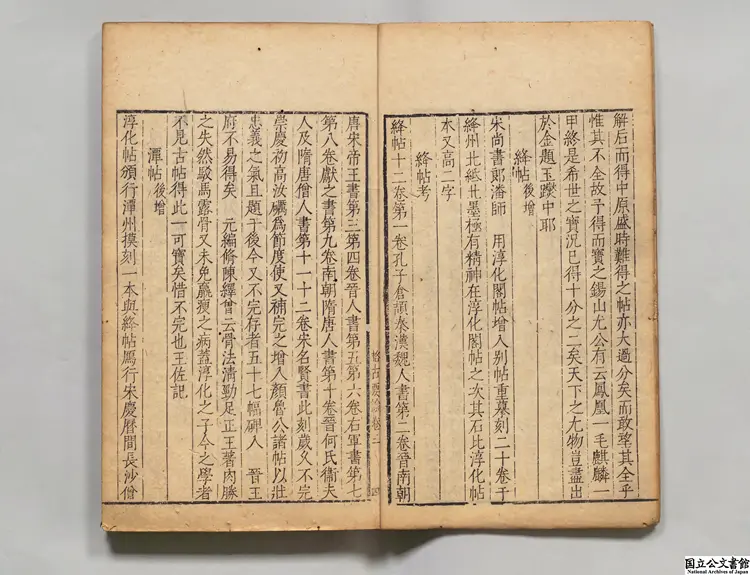 解后而得中原盛時難得之帖亦大過分矣而敢望其全乎
惟其不全故予得而寶之錫山尤公有云鳳凰一毛麒麟一
甲終是希世之寶況已得十分之二矣天下之尤物豈盡出
於金題玉躞中耶
絳帖後增
宋尚書郎潘師 用淳化閣帖增入别帖重摹刻二十卷于
絳州北紙北墨極有精神在淳化閣帖之次其石比淳化帖
本又高二字
絳帖考
絳帖十二卷第一卷孔子倉頡秦漢魏人書第二卷晉南朝
唐宋帝王書第三第四卷晉人書第五第六卷右軍書第七
第八卷獻之書第九卷南朝隋唐人書第十卷晉何氏衞夫
人及隋唐僧人書第十一十二卷宋名賢書此刻歲久不完
崇慶初高汝礪爲節度使又補完之增入顏魯公諸帖以壯
忠義之氣且題于後今又不完存者五十七幅碑入 晉王
府不易得矣 元編修陳繹曾云骨法清勁足正王著肉勝
之失然駿馬露骨又未免羸瘦之病蓋淳化之子今之學者
不見古帖得此一可寶矣惜不完也王佐記
潭帖後增
淳化帖頒行潭州摸刻一本與絳帖鴈行宋慶曆間長沙僧
格古要論卷二
国立公文書館
National Archives of Japan